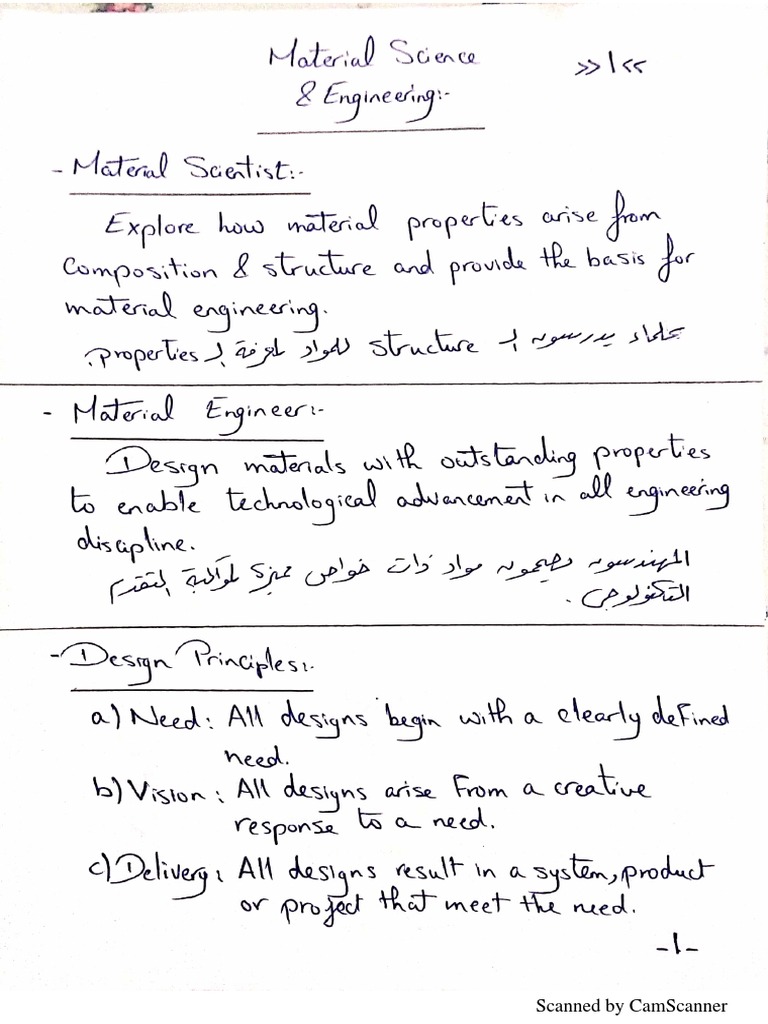 Material Science
>>1<<
& Engineering:-
- Material Scientist:-
Explore how material properties arise from
composition & structure and provide the basis for
material engineering.
علماء يدرسون الـ structure للمواد لمعرفة الـ properties.
- Material Engineer:-
Design materials with outstanding properties
to enable technological advancement in all engineering
discipline.
المهندسون يصممون مواد ذات خواص مميزة لمواكبة التقدم
التكنولوجى.
- Design Principles:-
a) Need: All designs begin with a clearly defined
need.
b) Vision: All designs arise From a creative
response to a need.
c) Delivery: All designs result in a system, product
or project that meet the need.
-1-
Scanned by CamScanner